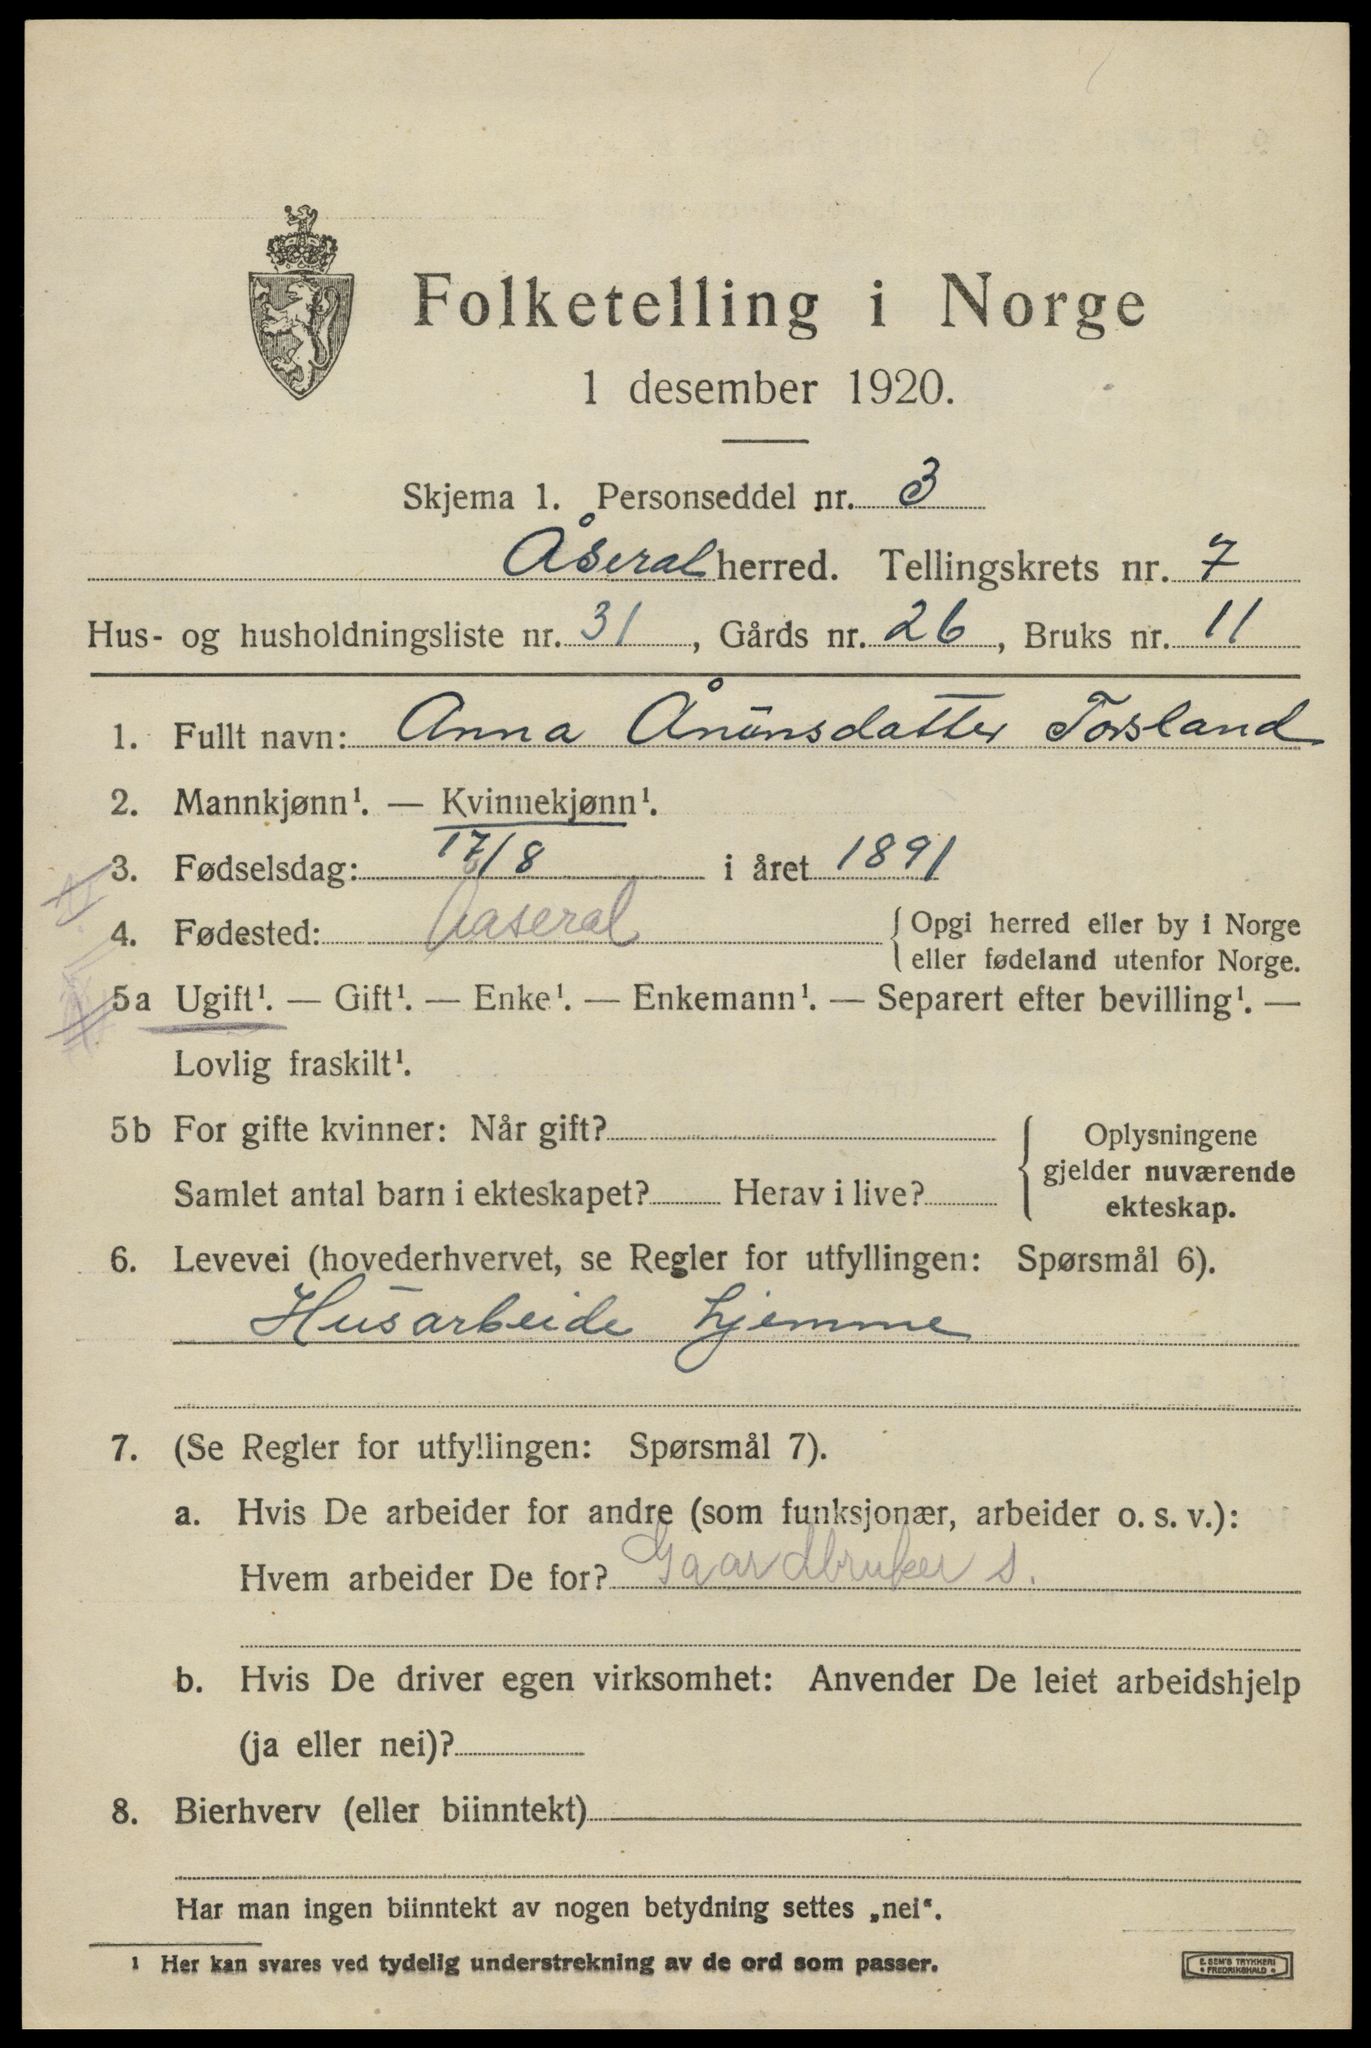 Folketelling i Norge
1 desember 1920.
Skjema 1. Personseddel nr. 3
Åseral herred. Tellingskrets nr. 7
Hus- og husholdningsliste nr. 31, Gårds nr. 26, Bruks nr. 11
1. Fullt navn: Anna Ånünsdatter Torsland
2. Mannkjønn¹. — Kvinnekjønn¹.
3. Fødselsdag: 17/8 i året 1891
4. Fødested: Aaseral { Opgi herred eller by i Norge
eller fødeland utenfor Norge.
5a Ugift¹. — Gift¹. — Enke¹. — Enkemann¹. — Separert efter bevilling¹. —
Lovlig fraskilt¹.
5b For gifte kvinner: Når gift?
Samlet antal barn i ekteskapet? Herav i live?
Oplysningene
gjelder nuværende
ekteskap.
6. Levevei (hovederhvervet, se Regler for utfyllingen: Spørsmål 6).
Husarbeide hjemme
7. (Se Regler for utfyllingen: Spørsmål 7).
a. Hvis De arbeider for andre (som funksjonær, arbeider o. s. v.):
Hvem arbeider De for? Gaardbruker s.
b. Hvis De driver egen virksomhet: Anvender De leiet arbeidshjelp
(ja eller nei)?
8. Bierhverv (eller biinntekt)
Har man ingen biinntekt av nogen betydning settes „nei“.
¹ Her kan svares ved tydelig understrekning av de ord som passer.
E. SEM'S TRYKKERI
FREDRIKSHALD